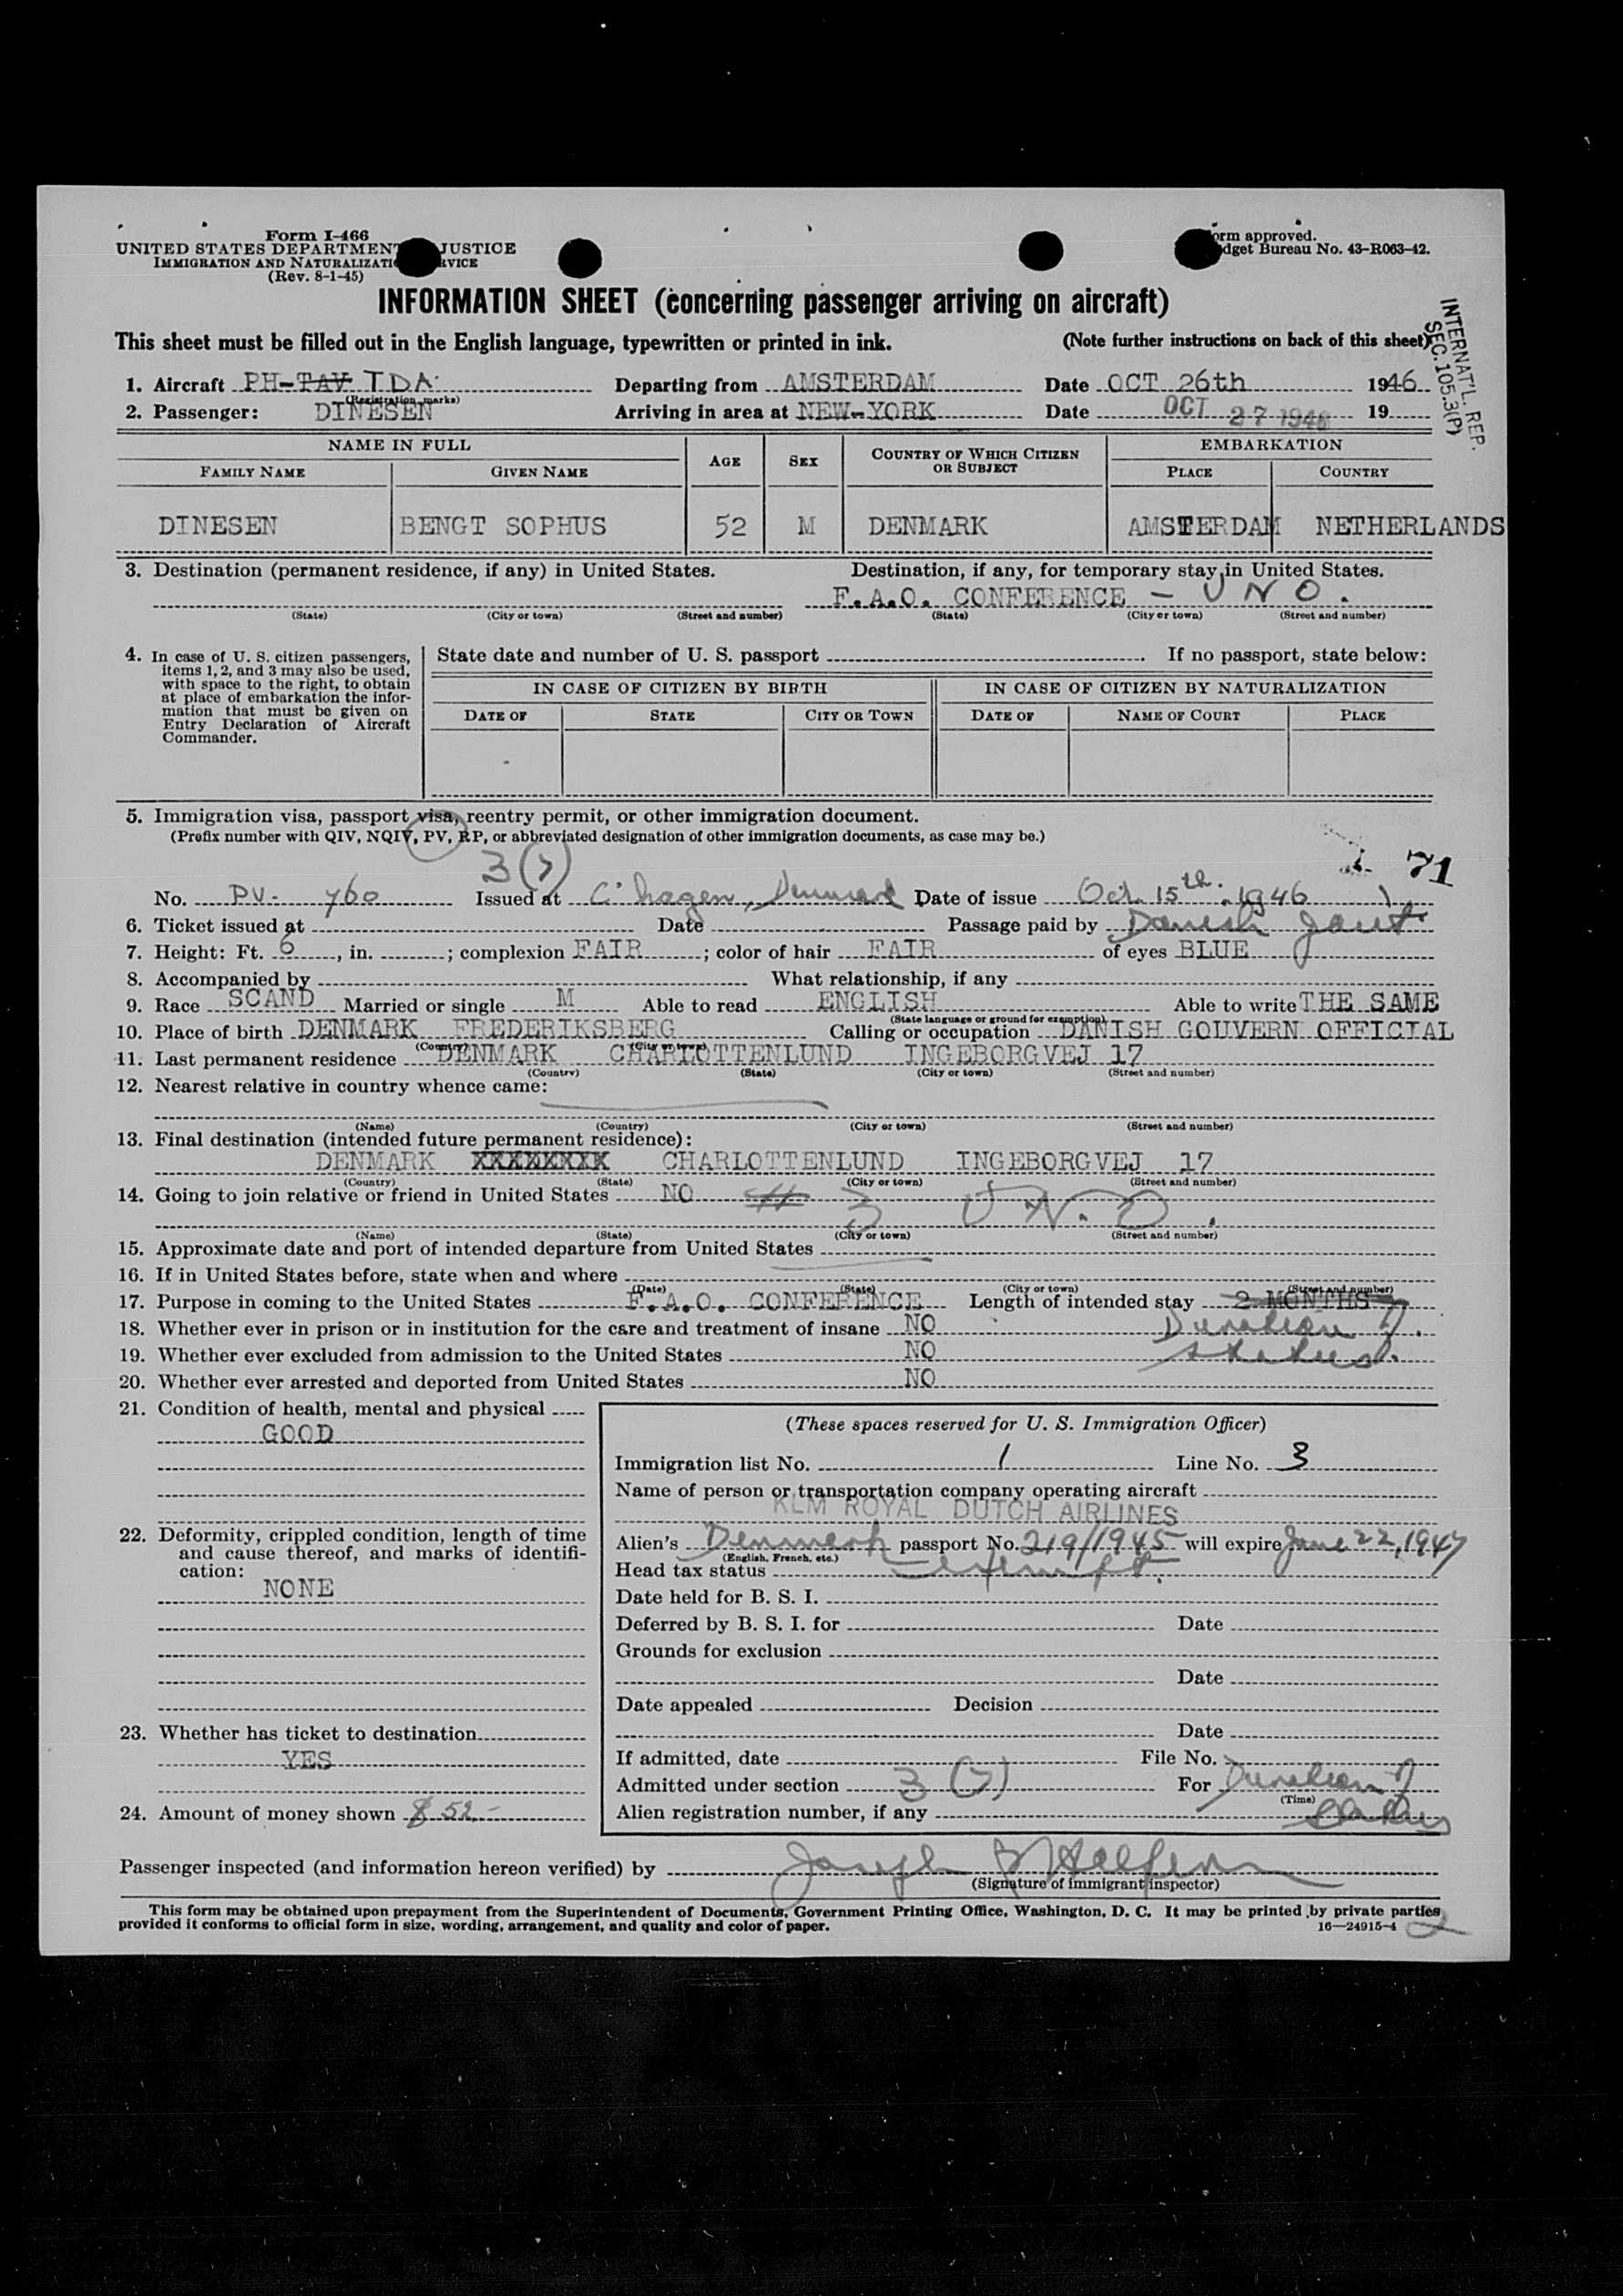 Form I-466
UNITED STATES DEPARTMENT JUSTICE
IMMIGRATION AND NATURALIZATI RVICE
(Rev. 8-1-45)
orm approved.
dget Bureau No. 43-R063-42.
INFORMATION SHEET (concerning passenger arriving on aircraft)
This sheet must be filled out in the English language, typewritten or printed in ink. (Note further instructions on back of this sheet)
INTERNAT'L. REP.
SEC. 105.3(P)
1. Aircraft PH-TAV TDA Departing from AMSTERDAM Date OCT 26th 1946
(Registration marks)
2. Passenger: DINESEN Arriving in area at NEW-YORK Date OCT 27 1946 19
NAME IN FULL AGE SEX COUNTRY OF WHICH CITIZEN OR SUBJECT EMBARKATION
FAMILY NAME GIVEN NAME PLACE COUNTRY
DINESEN BENGT SOPHUS 52 M DENMARK AMSTERDAM NETHERLANDS
3. Destination (permanent residence, if any) in United States. Destination, if any, for temporary stay in United States.
F.A.O. CONFERENCE - UNO.
(State) (City or town) (Street and number) (State) (City or town) (Street and number)
4. In case of U. S. citizen passengers, items 1, 2, and 3 may also be used, with space to the right, to obtain at place of embarkation the information that must be given on Entry Declaration of Aircraft Commander.
State date and number of U. S. passport If no passport, state below:
IN CASE OF CITIZEN BY BIRTH IN CASE OF CITIZEN BY NATURALIZATION
DATE OF STATE CITY OR TOWN DATE OF NAME OF COURT PLACE
5. Immigration visa, passport visa, reentry permit, or other immigration document.
(Prefix number with QIV, NQIV, PV, RP, or abbreviated designation of other immigration documents, as case may be.)
3(7) 71
No. PV- 760 Issued at C'hagen, Denmark Date of issue Oct. 15th. 1946
6. Ticket issued at Date Passage paid by Danish Gov't
7. Height: Ft. 6, in. ; complexion FAIR ; color of hair FAIR of eyes BLUE
8. Accompanied by What relationship, if any
9. Race SCAND Married or single M Able to read ENGLISH Able to write THE SAME
(State language or ground for exemption)
10. Place of birth DENMARK FREDERIKSBERG Calling or occupation DANISH GOUVERN OFFICIAL
(Country) (City or town)
11. Last permanent residence DENMARK CHARLOTTENLUND INGEBORGVEJ 17
(Country) (State) (City or town) (Street and number)
12. Nearest relative in country whence came:
(Name) (Country) (City or town) (Street and number)
13. Final destination (intended future permanent residence):
DENMARK XXXXXXXX CHARLOTTENLUND INGEBORGVEJ 17
(Country) (State) (City or town) (Street and number)
14. Going to join relative or friend in United States NO
3 U.N.O.
(Name) (State) (City or town) (Street and number)
15. Approximate date and port of intended departure from United States
16. If in United States before, state when and where
(Date) (State) (City or town) (Street and number)
17. Purpose in coming to the United States F.A.O. CONFERENCE Length of intended stay 2 MONTHS
18. Whether ever in prison or in institution for the care and treatment of insane NO Duration of
19. Whether ever excluded from admission to the United States NO status.
20. Whether ever arrested and deported from United States NO
21. Condition of health, mental and physical
GOOD
22. Deformity, crippled condition, length of time and cause thereof, and marks of identification:
NONE
23. Whether has ticket to destination
YES
24. Amount of money shown $ 52.-
(These spaces reserved for U. S. Immigration Officer)
Immigration list No. 1 Line No. 3
Name of person or transportation company operating aircraft
KLM ROYAL DUTCH AIRLINES
Alien's Denmark passport No. 219/1945 will expire June 22, 1947
(English, French, etc.)
Head tax status exempt.
Date held for B. S. I.
Deferred by B. S. I. for Date
Grounds for exclusion
Date
Date appealed Decision
Date
If admitted, date File No.
Admitted under section 3 (7) For Duration of
(Time)
Alien registration number, if any status
Passenger inspected (and information hereon verified) by Joseph B Halpern
(Signature of immigrant inspector)
This form may be obtained upon prepayment from the Superintendent of Documents, Government Printing Office, Washington, D. C. It may be printed by private parties
provided it conforms to official form in size, wording, arrangement, and quality and color of paper. 16—24915-4 2